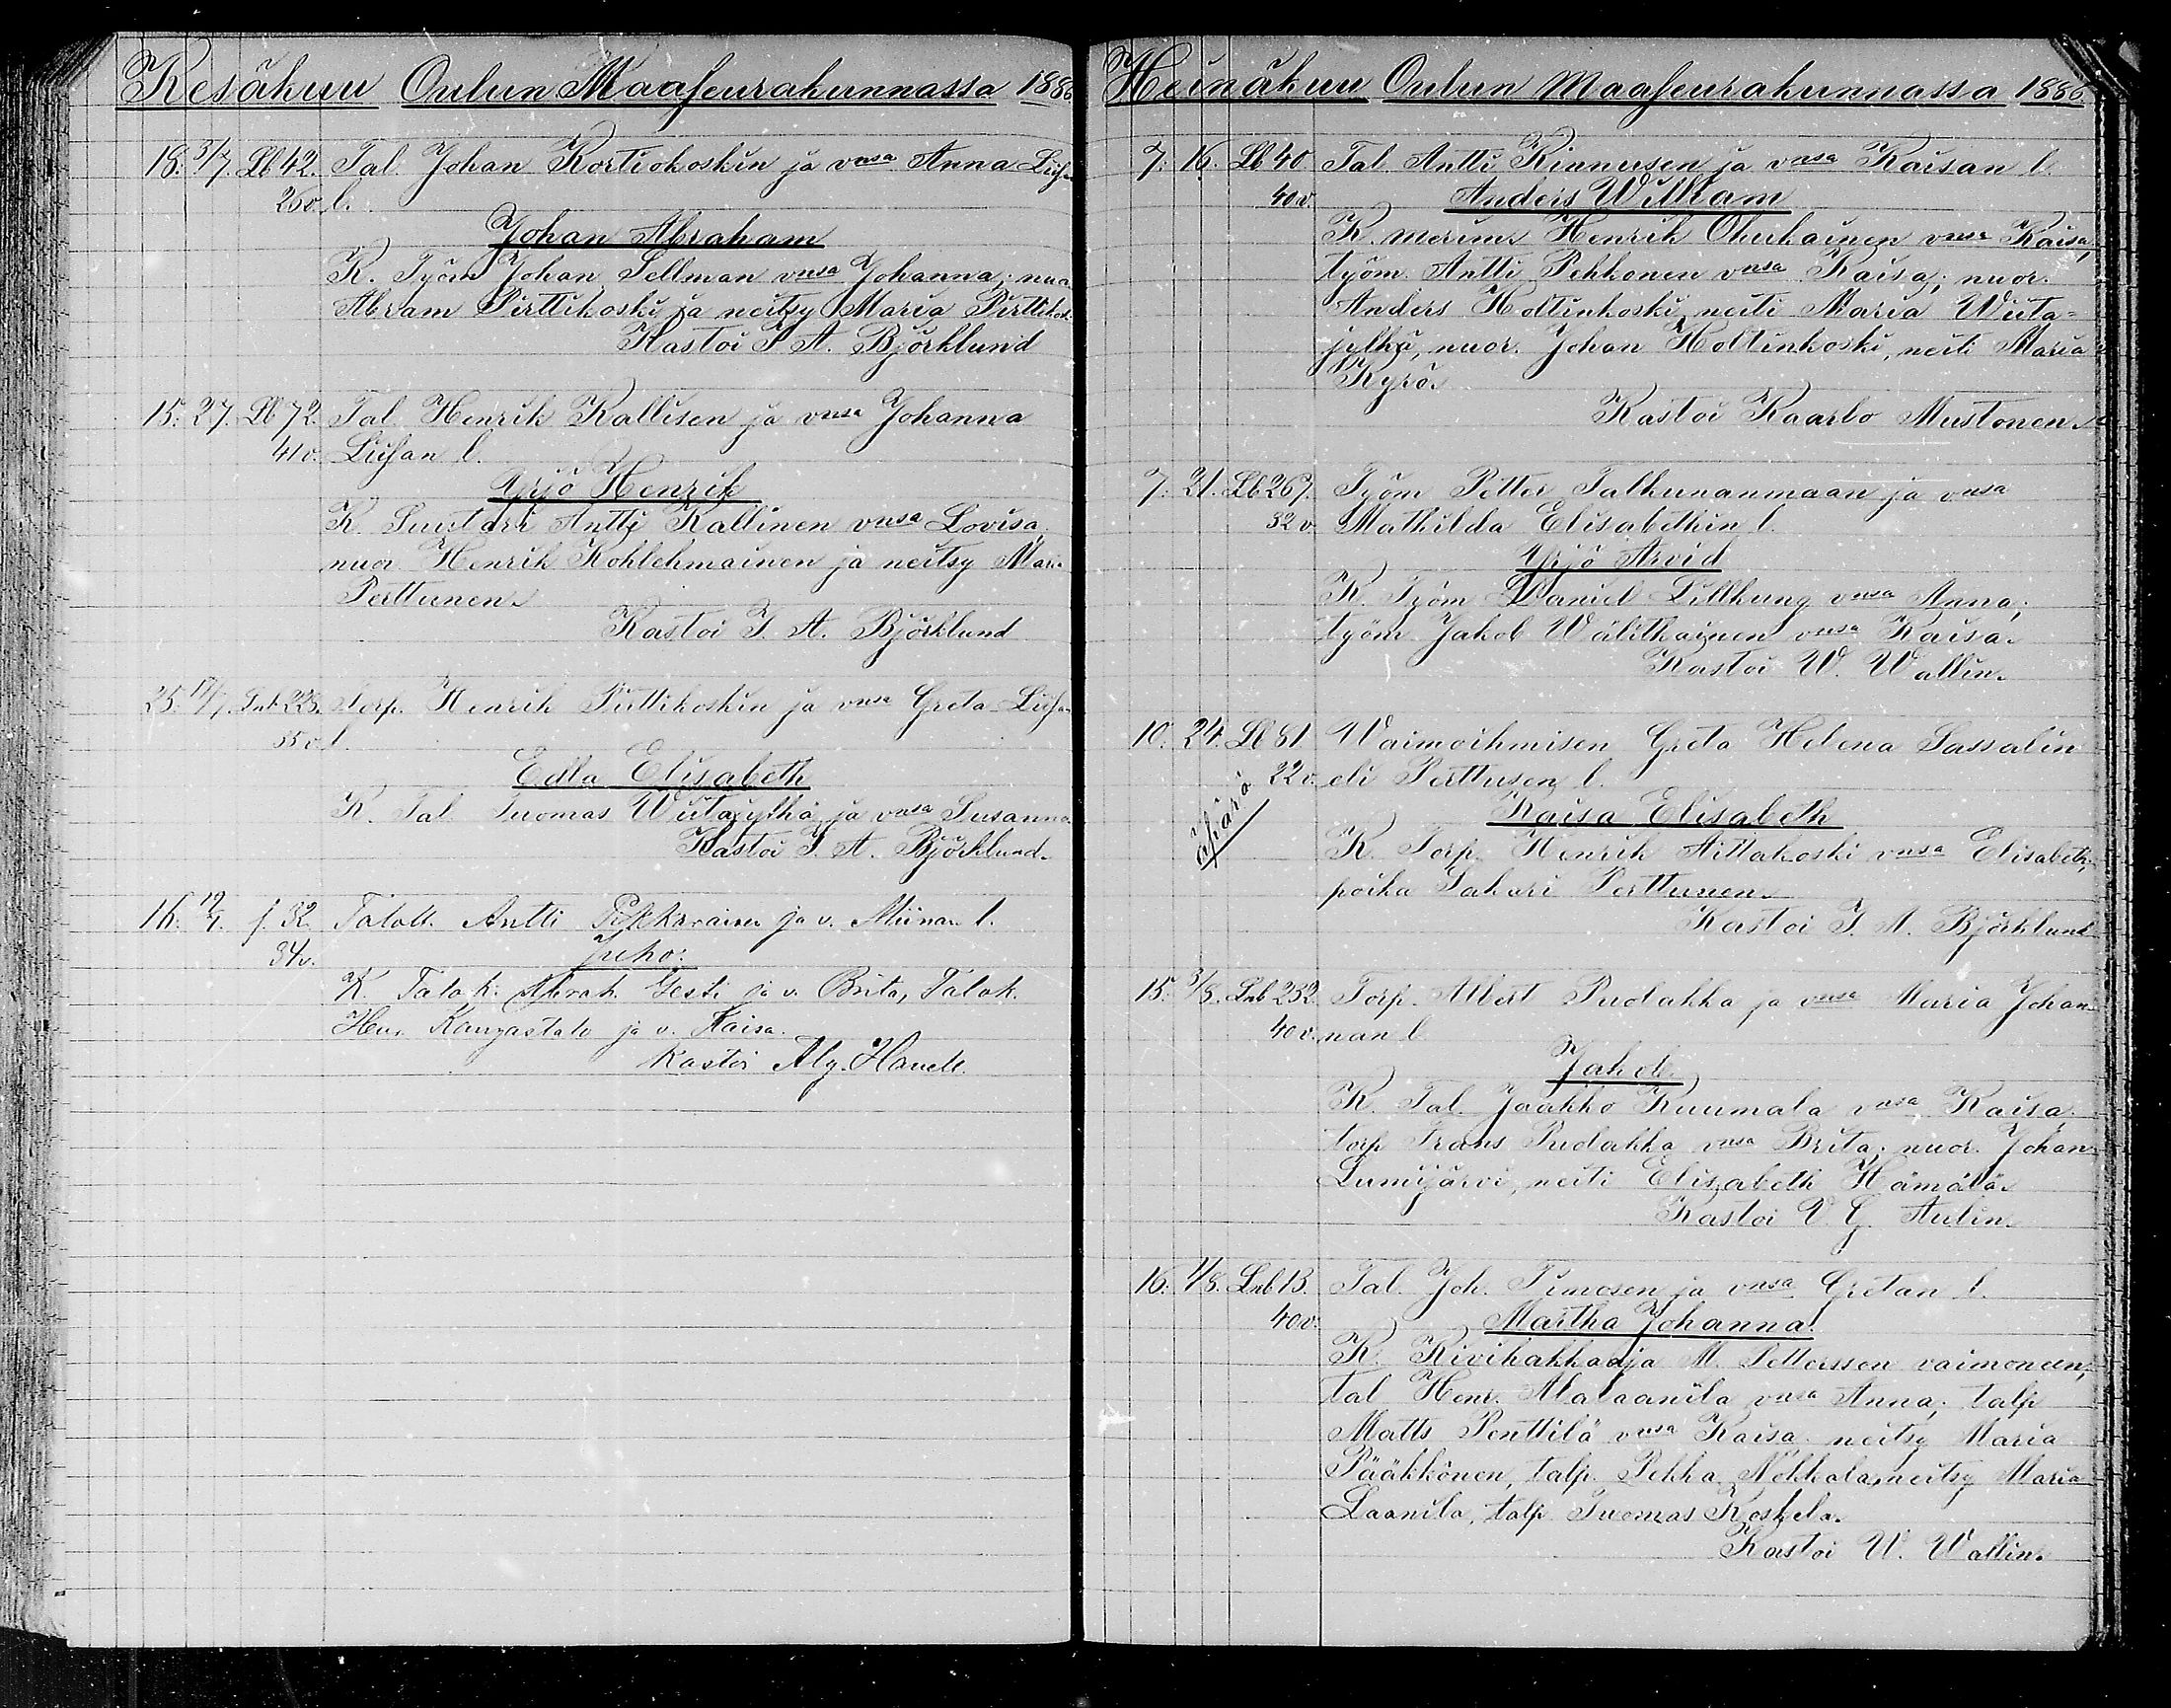 Kesäkuu Oulun Maaseurakunnassa 1886
18. 3/7. Lb 42. Tal. Johan Kortiokoskin ja vnsa Anna Liis
26 v. l.
Johan Abraham
K. Työm Johan Sellman vnsa Johanna; nuo
Abram Pirttikoski ja neitsy Maria Pirttikos
Kastoi J. A. Björklund
15. 27. Lb 72. Tal. Henrik Kallisen ja vnsa Johanna
41 v. Liisan l.
Yrjö Henrik
K. Suutari Antti Kallinen vnsa Lovisa,
nuor. Henrik Kohlehmainen ja neitsy Mari
Perttunen.
Kastoi J. A. Björklund
25. 17/7. 223. Torp. Henrik Pirttikoskin ja vnsa Greta Liisa
35 v. l.
Edla Elisabeth
K. Tal. Tuomas Wiitajylkä ja vnsa Susanna
Kastoi J. A. Björklund.
16. f. 32 Taloll. Antti ja v. Miinan l.
34 v. Juho.
K. Talok. Abrah. Jesti ja v. Brita, Talok.
Hen. Kangastalo ja v. Kaisa.
Kastoi Alg. Hanell.
Heinäkuu Oulun Maaseurakunnassa 1886.
7. 16. Lb 40 Tal. Antti Kinnusen ja vnsa Kaisan l.
40 v. Anders William
K. merim. Henrik Ohukainen vnsa Kaisa,
työm. Antti Pehkonen vnsa Kaisa; nuor.
Anders Holtinkoski, neiti Maria Wiita-
jylkä, nuor. Johan Holtinkoski, neiti Maria
Kyrö.
Kastoi Kaarlo Mustonen.
7. 21. Lb 267. Työm Petter Talkunanmaan ja vnsa
32 v. Mathilda Elisabethin l.
Yrjö Arvid
K. Työm Daniel Lillkung vnsa Anna;
työm. Jakob Wälitkainen vnsa Kaisa.
Kastoi W. Wallin.
10. 24. Lb 81 Waimoihmisen Greta Helena Sassalin
22 v. eli Perttusen l.
äpärä
Kaisa Elisabeth
K. Torp. Henrik Aittakoski vnsa Elisabeth;
poika Sakari Perttunen.
Kastoi J. A. Björklund
15. 3/8. Lnb 252. Torp. Albert Pudakka ja vnsa Maria Johan-
40 v. nan l.
K. Tal. Jaakko Kuumala vnsa Kaisa,
torp Frans Pudakka vnsa Brita; nuor. Johan
Lumijärvi, neiti Elisabeth Hämälä.
Kastoi V. G. Aulin.
16. 1/8. Lnb 13. Tal. Joh. Timosen ja vnsa Gretan l.
40 v. Martha Johanna.
K. Kivihakkaaja M. Setterssen vaimoneen;
tal Henr. Alalaanila vnsa Anna; talp
Matts Penttilä vnsa Kaisa. neitsy Maria
Pääkkönen, talp. Pekka Nökkala, neitsy Maria
Laanila, talp Tuomas Koskela.
Kastoi W. Wallin.